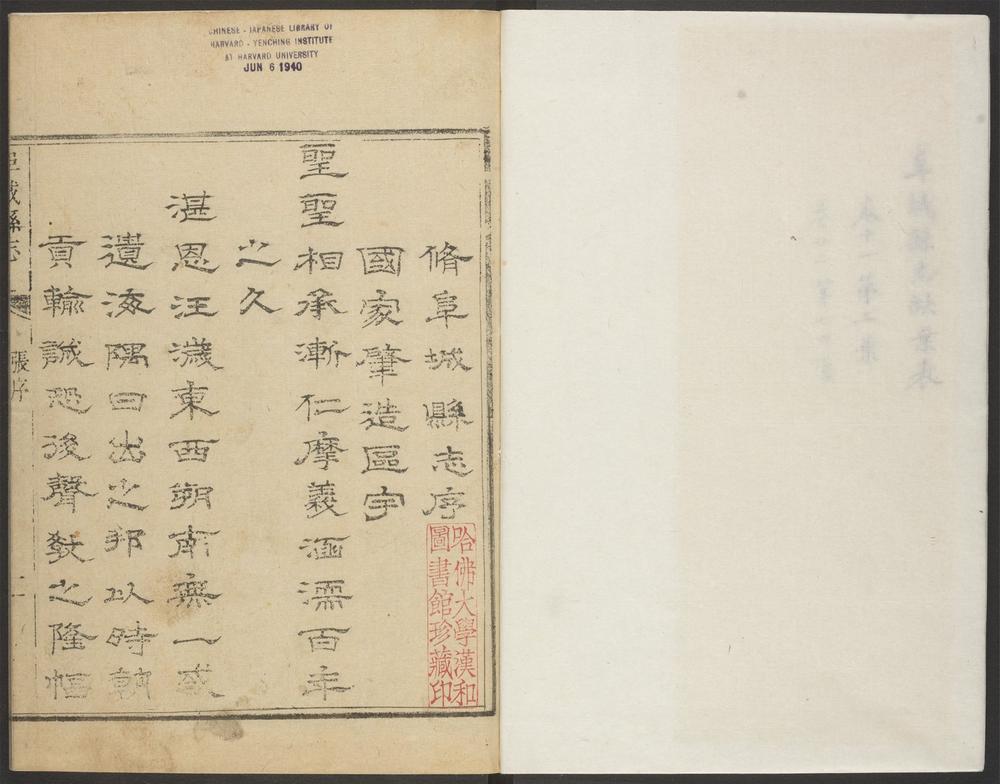 CHINESE - JAPANESE LIBRARY OF
HARVARD - YENCHING INSTITUTE
AT HARVARD UNIVERSITY
JUN 6 1940
脩阜城縣志序
國家肇造區宇
聖聖相承漸仁摩義涵濡百年
之久
湛恩汪濊東西朔南無一或
遺海隅日出之邦以時朝
貢輸誠恐後聲教之隆恒
哈佛大學漢和
圖書館珍藏印
阜城縣志
張序
一